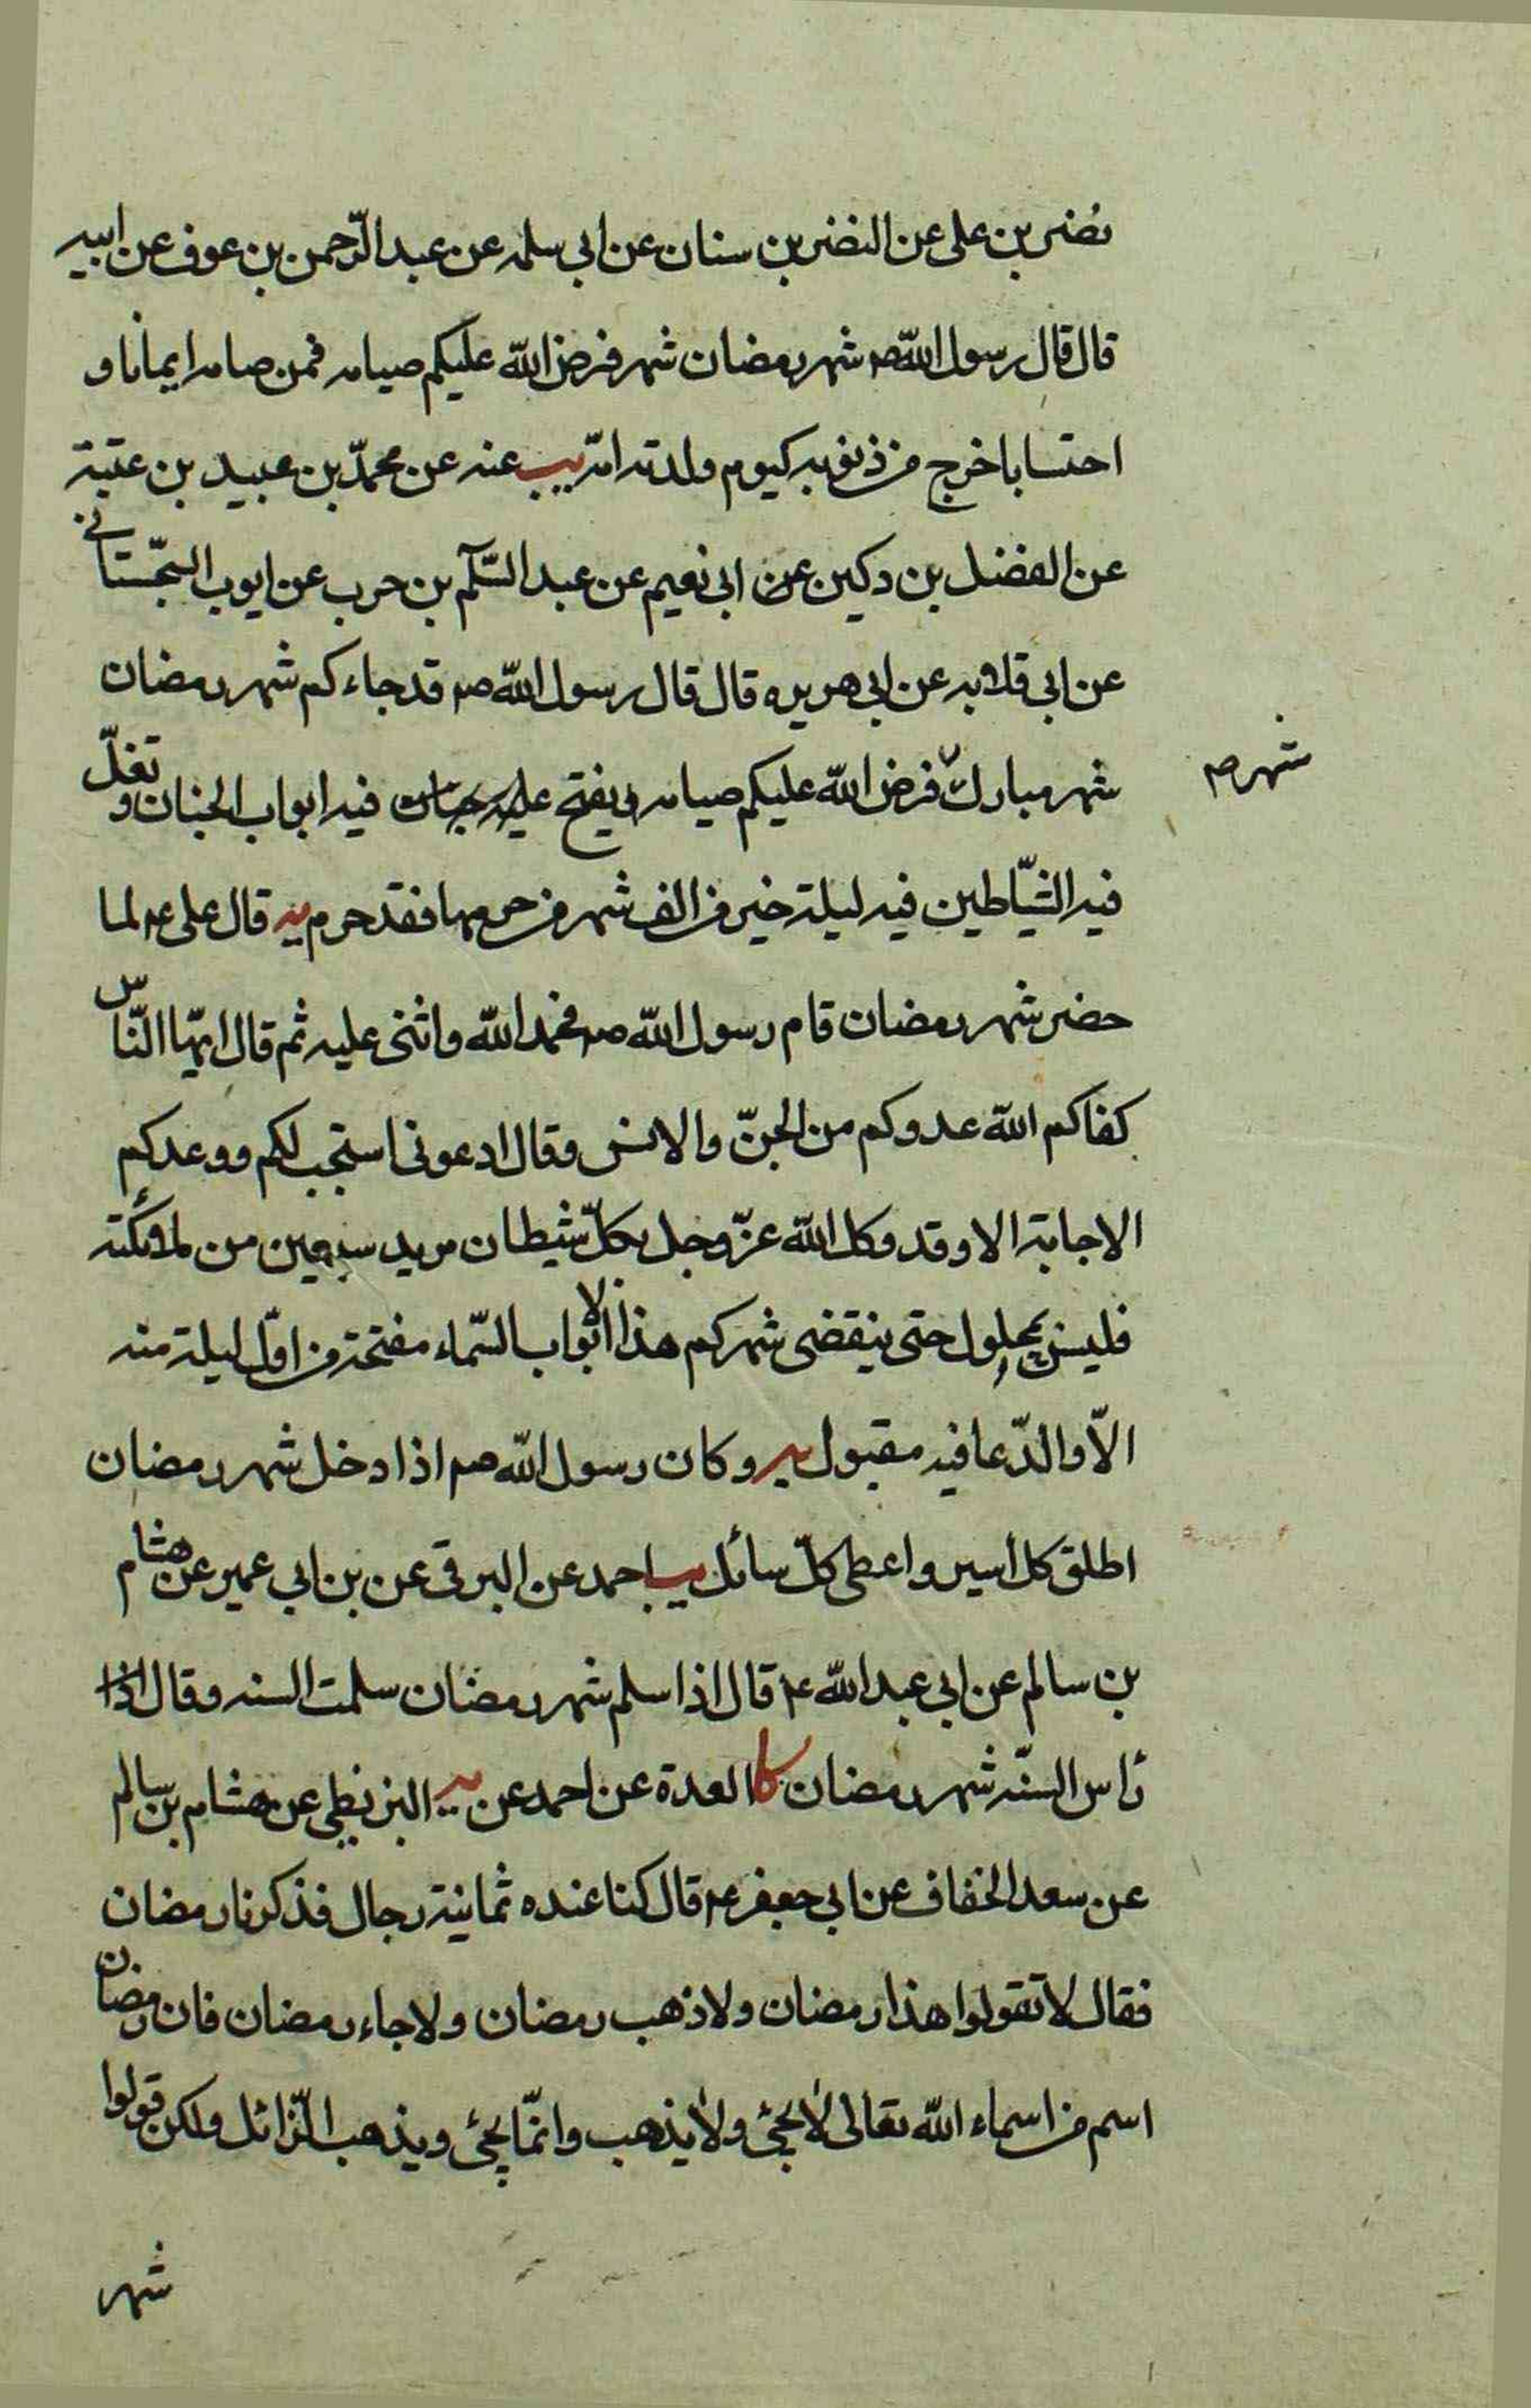 نضر بن على عن النضر بن سنان عن ابى سلمه عن عبد الرّحمن بن عوف عن ابيه
قال قال رسول اللّه ص شهر رمضان شهر فرض اللّه عليكم صيامه فمن صامه ايمانا و
احتسابا خرج من ذنوبه كيوم ولدته امّه يب عنه عن محمّد بن عبيد بن عتبة
عن الفضل بن دكين عن ابى نعيم عن عبد السّلم بن حرب عن ايوب السّجستانى
عن ابى قلابه عن ابى هريره قال قال رسول اللّه ص قد جاءكم شهر رمضان
شهر مبارك فرض اللّه عليكم صيامه يفتح فيه ابواب الجنان و تغلّ
شهر ص
فيه الشّياطين فيه ليلة خير من الف شهر من حرمها فقد حرم يه قال على ع لما
حضر شهر رمضان قام رسول اللّه ص فحمد اللّه واثنى عليه ثم قال ايّها النّاس
كفاكم اللّه عدوكم من الجنّ والانس وقال ادعونى استجب لكم ووعدكم
الاجابة الا وقد وكل اللّه عزّ وجل بكلّ شيطان مريد سبعين من ملائكته
فليس بمحلول حتى ينقضى شهركم هذا الا ابواب السّماء مفتحة من اوّل ليلة منه
الاّ والدّعا فيه مقبول يه وكان رسول اللّه ص اذا دخل شهر رمضان
اطلق كل أسير واعطى كلّ سائل يب احمد عن البرقى عن بن ابى عمير عن هشام
بن سالم عن ابى عبد اللّه ع قال اذا سلم شهر رمضان سلمت السنه وقال
رأس السنّه شهر رمضان كا العدة عن احمد عن البزنطى عن هشام بن سالم
عن سعد الخفاف عن ابى جعفر ع قال كنا عنده ثمانية رجال فذكرنا رمضان
فقال لا تقولوا هذا رمضان ولا ذهب رمضان ولا جاء رمضان فان رمضان
اسم من اسماء اللّه تعالى لا يجئ ولا يذهب وانّما يجئ ويذهب الزّائل ولكن قولوا
شهر